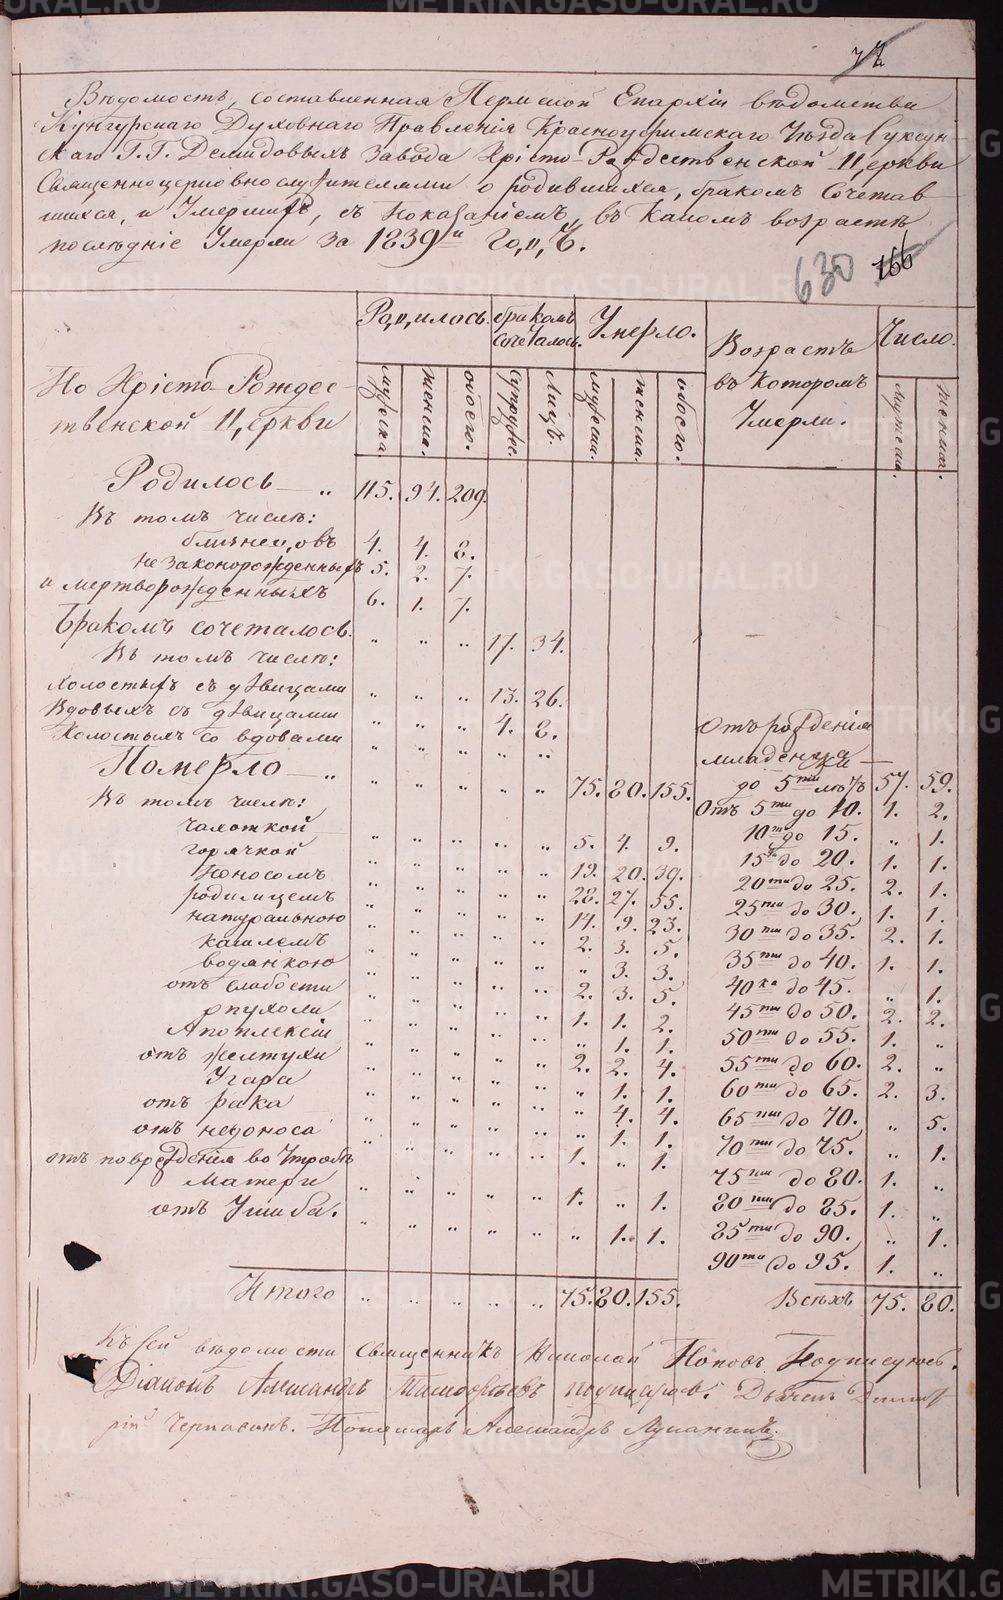 Вѣдомость, составленная Пермской Епархіи вѣдомства
Кунгурскаго Духовнаго Правленія Красноуфимскаго Уѣзда Суксун-
скаго Г. Г. Демидовыхъ завода Христо-Рождественской Церкви
Священноцерковнослужителями о родившихся, бракомъ Сочетав
шихся, и Умершихъ, съ показаніемъ, въ какомъ возрастѣ
послѣдніе Умерли за 1839й годъ.
630 166
По Христо Рождес-
твенской Церкви
Родилось. бракомъ сочеталось. Умерло. Возрастъ въ которомъ Умерли. Число.
мужеска. женска. обоего. супружес. Лицъ. мужеска. женска. обоего. Мужеска. женска.
Родилось — „ 115. 94. 209.
Въ томъ числѣ:
близнецовъ 4. 4. 8.
незаконорожденныхъ 5. 2. 7.
и мертворожденныхъ 6. 1. 7.
Бракомъ сочеталось. „ „ „ 17. 34.
Въ томъ числѣ:
холостыхъ съ дѣвицами „ „ „ 13. 26.
Вдовыхъ съ дѣвицами „ „ „ 4. 8.
Холостыхъ со вдовами „ „ „ „ „
Померло — „ „ „ „ „ „ 75. 80. 155.
Въ томъ числѣ:
Чахоткой „ „ „ „ „ 5. 4. 9.
горячкой „ „ „ „ „ 19. 20. 39.
Поносомъ „ „ „ „ „ 28. 27. 55.
родимцемъ „ „ „ „ „ 14. 9. 23.
натуральною „ „ „ „ „ 2. 3. 5.
кашлемъ „ „ „ „ „ „ 3. 3.
водянкою „ „ „ „ „ 2. 3. 5.
отъ слабости „ „ „ „ „ 1. 1. 2.
опухоли „ „ „ „ „ „ 1. 1.
Апоплексіи „ „ „ „ „ 2. 2. 4.
отъ желтухи „ „ „ „ „ „ 1. 1.
Угара „ „ „ „ „ „ 4. 4.
отъ рака „ „ „ „ „ „ 1. 1.
отъ недоноса „ „ „ „ „ 1. „ 1.
отъ поврежденія во Утробѣ
Матери „ „ „ „ „ 1. „ 1.
отъ Ушиба. „ „ „ „ „ „ 1. 1.
Итого „ „ „ „ „ 75. 80. 155.
Отъ рожденія
младенца
до 5ти лѣтъ 57. 59.
Отъ 5ти до 10. 1. 2.
10ти до 15. „ 1.
15ти до 20. 1. 1.
20ти до 25. 2. 1.
25ти до 30. 1. 1.
30ти до 35. 2. 1.
35ти до 40. 1. 1.
40ка до 45. „ 1.
45ти до 50. 2. 2.
50ти до 55. 1. „
55ти до 60. 2. „
60ти до 65. 2. 3.
65ти до 70. „ 5.
70ти до 75. „ 1.
75ти до 80. 1. „
80ти до 85. 1. „
85ти до 90. „ 1.
90та до 95. 1. „
Всѣхъ 75. 80.
Къ сей вѣдомости Священникъ Николай Поповъ Подписуюсь.
Діаконъ Александръ Тимофѣевъ подписуюсь. Дьячекъ Димит
рій Черпавинъ. Пономарь Александръ Луканинъ.
METRIKI.GASO-URAL.RU